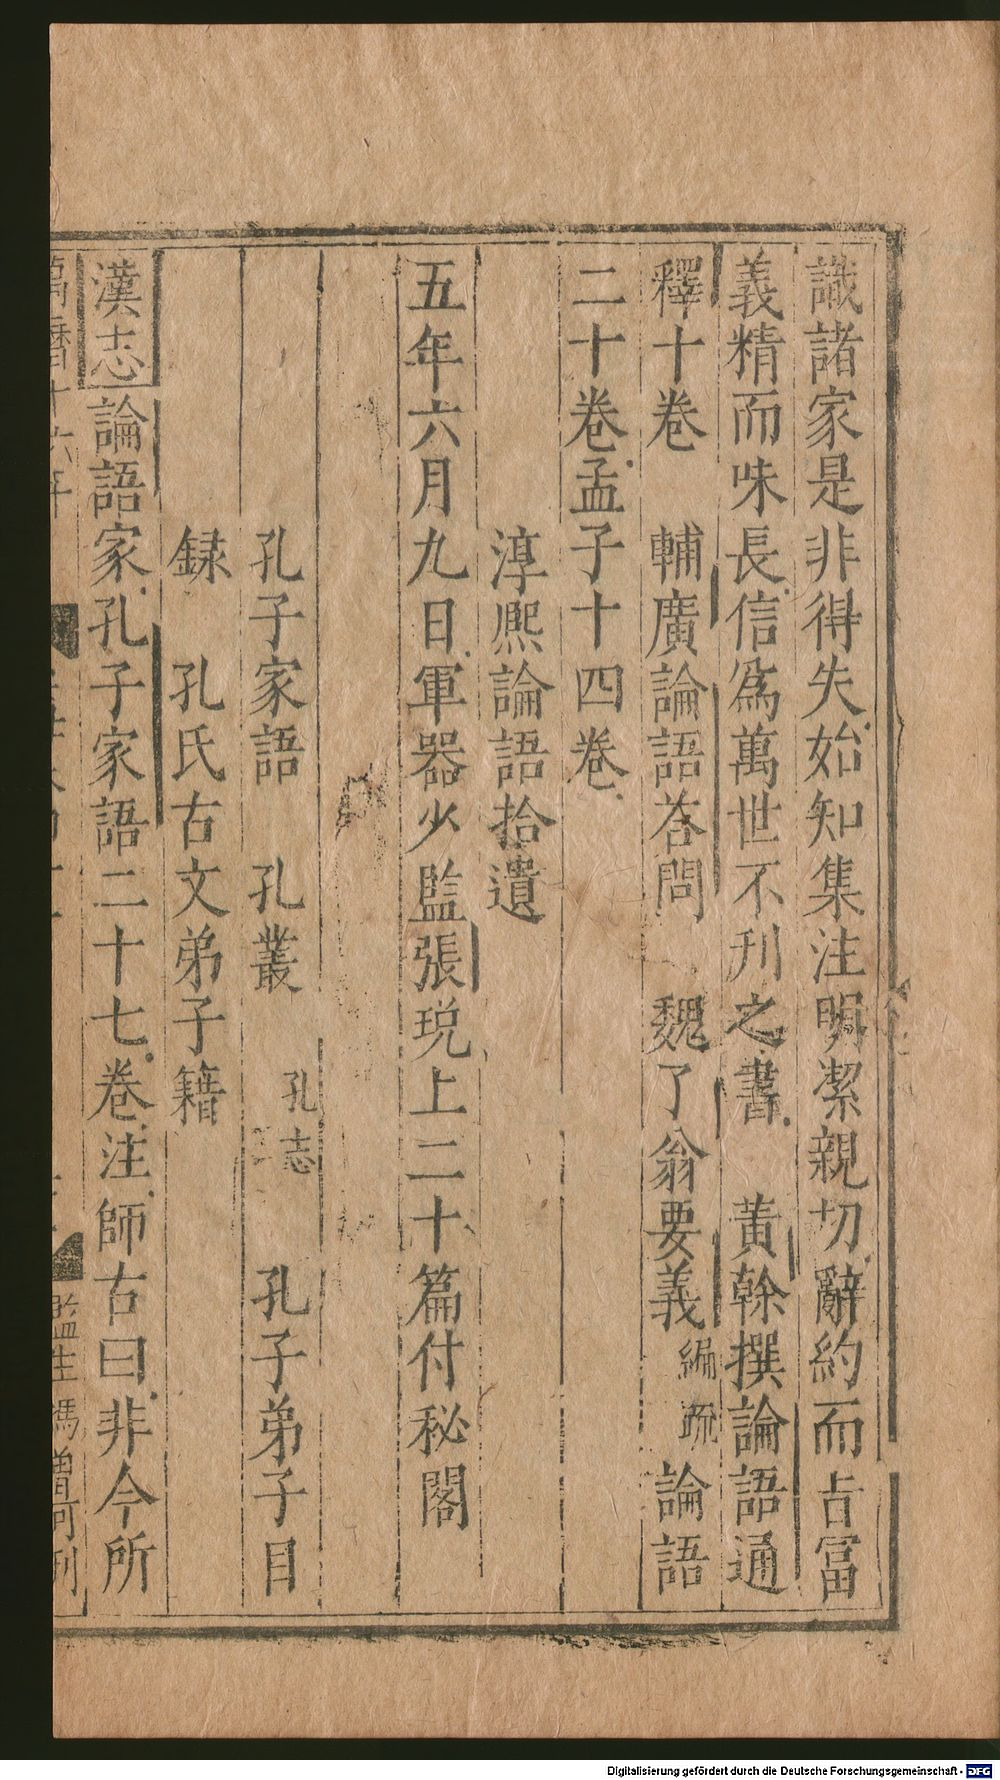 識諸家是非得失始知集注明潔親切辭約而㫖冨
義精而味長信爲萬世不刋之書 黃榦撰論語通
釋十卷 輔廣論語荅問 魏了翁要義編疏論語
二十卷孟子十四卷
淳熈論語拾遺
五年六月九日軍器少監張琓上二十篇付秘閣
孔子家語 孔叢 孔志 孔子弟子目
録 孔氏古文弟子籍
漢志論語家孔子家語二十七卷注師古曰非今所
萬曆十六年
監生馮
刋
Digitalisierung gefördert durch die Deutsche Forschungsgemeinschaft - DFG